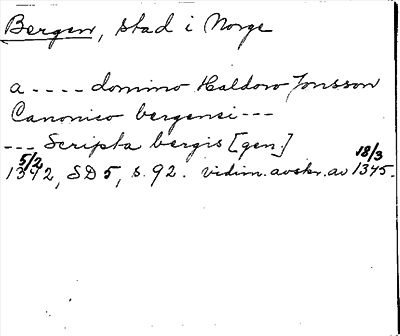 Bergen, stad i Norge
a---- domino Haldoro Jonsson
Canonico bergensi---
--- Scripta bergis [gen.]
5/2 1342, SD 5, s. 92. vidim. avskr. av 18/3 1345.